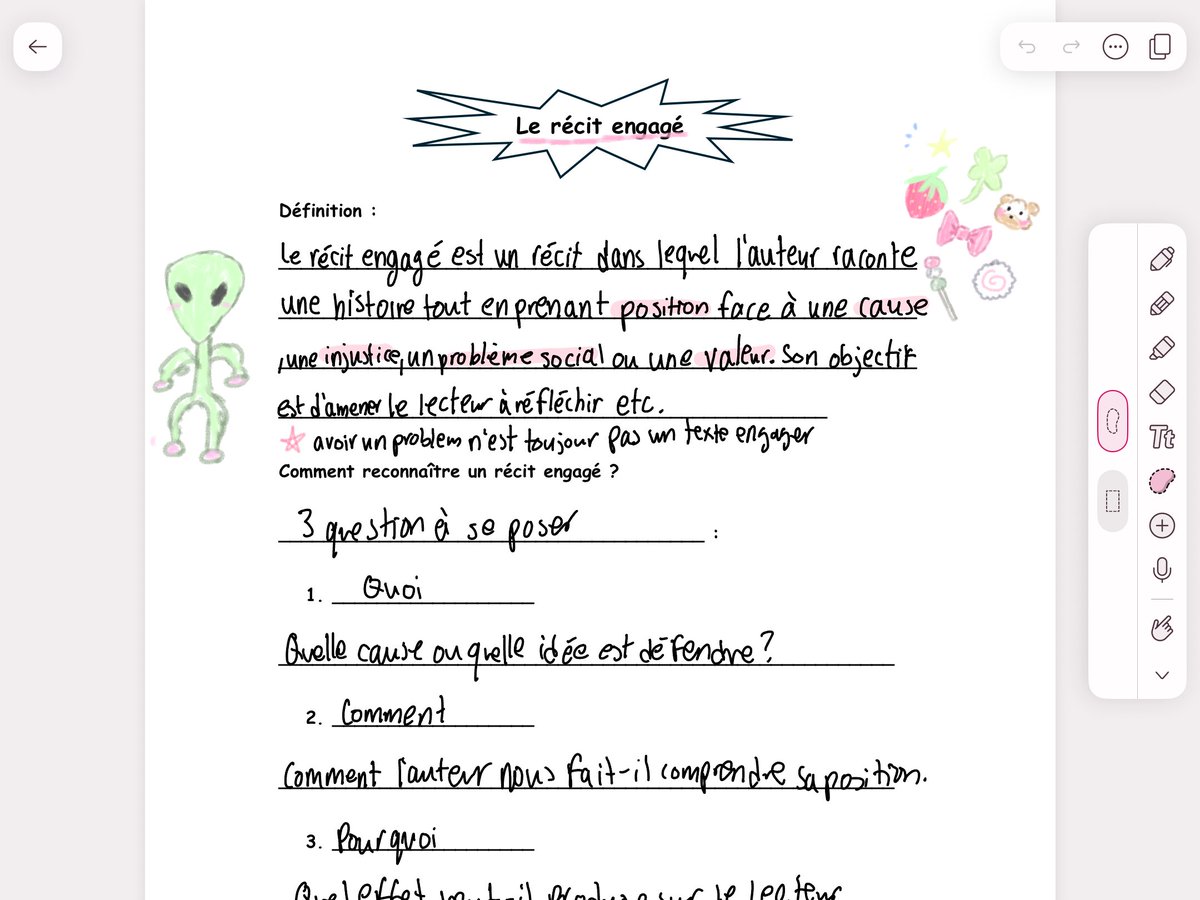 Le récit engagé
Définition :
Le récit engagé est un récit dans lequel l'auteur raconte
une histoire tout en prenant position face à une cause
,une injustice, un problème social ou une valeur. Son objectif
est d'amener le lecteur à réfléchir etc.
avoir un problem n'est toujour pas un texte engager
Comment reconnaître un récit engagé ?
3 question à se poser :
1. Quoi
Quelle cause ou quelle idée est défendre ?
2. Comment
Comment l'auteur nous fait-il comprendre sa position.
3. Pourquoi
Quel effet veut-il produire sur le lecteur
Tt